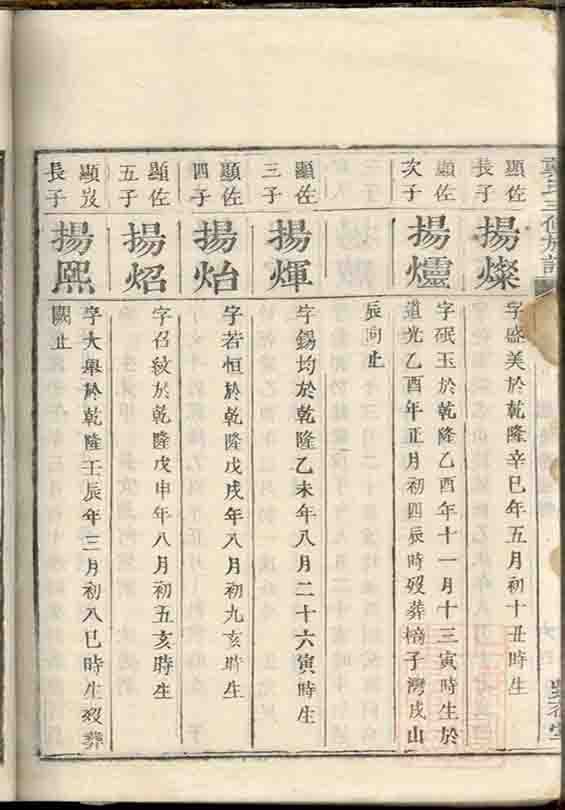 顯佐
長子
揚燦
字盛美於乾隆辛巳年五月初十丑時生
顯佐
次子
揚爧
字珉玉於乾隆乙酉年十一月十三寅時生於
道光乙酉年正月初四辰時歿葬檳子灣戌山
辰向止
顯佐
三子
揚煇
字錫均於乾隆乙未年八月二十六寅時生
顯佐
四子
揚炲
字若恒於乾隆戊戌年八月初九亥時生
顯佐
五子
揚炤
字召紋於乾隆戊申年八月初五亥時生
顯岌
長子
揚熙
字大舉於乾隆壬辰年三月初八巳時生歿葬
闕止